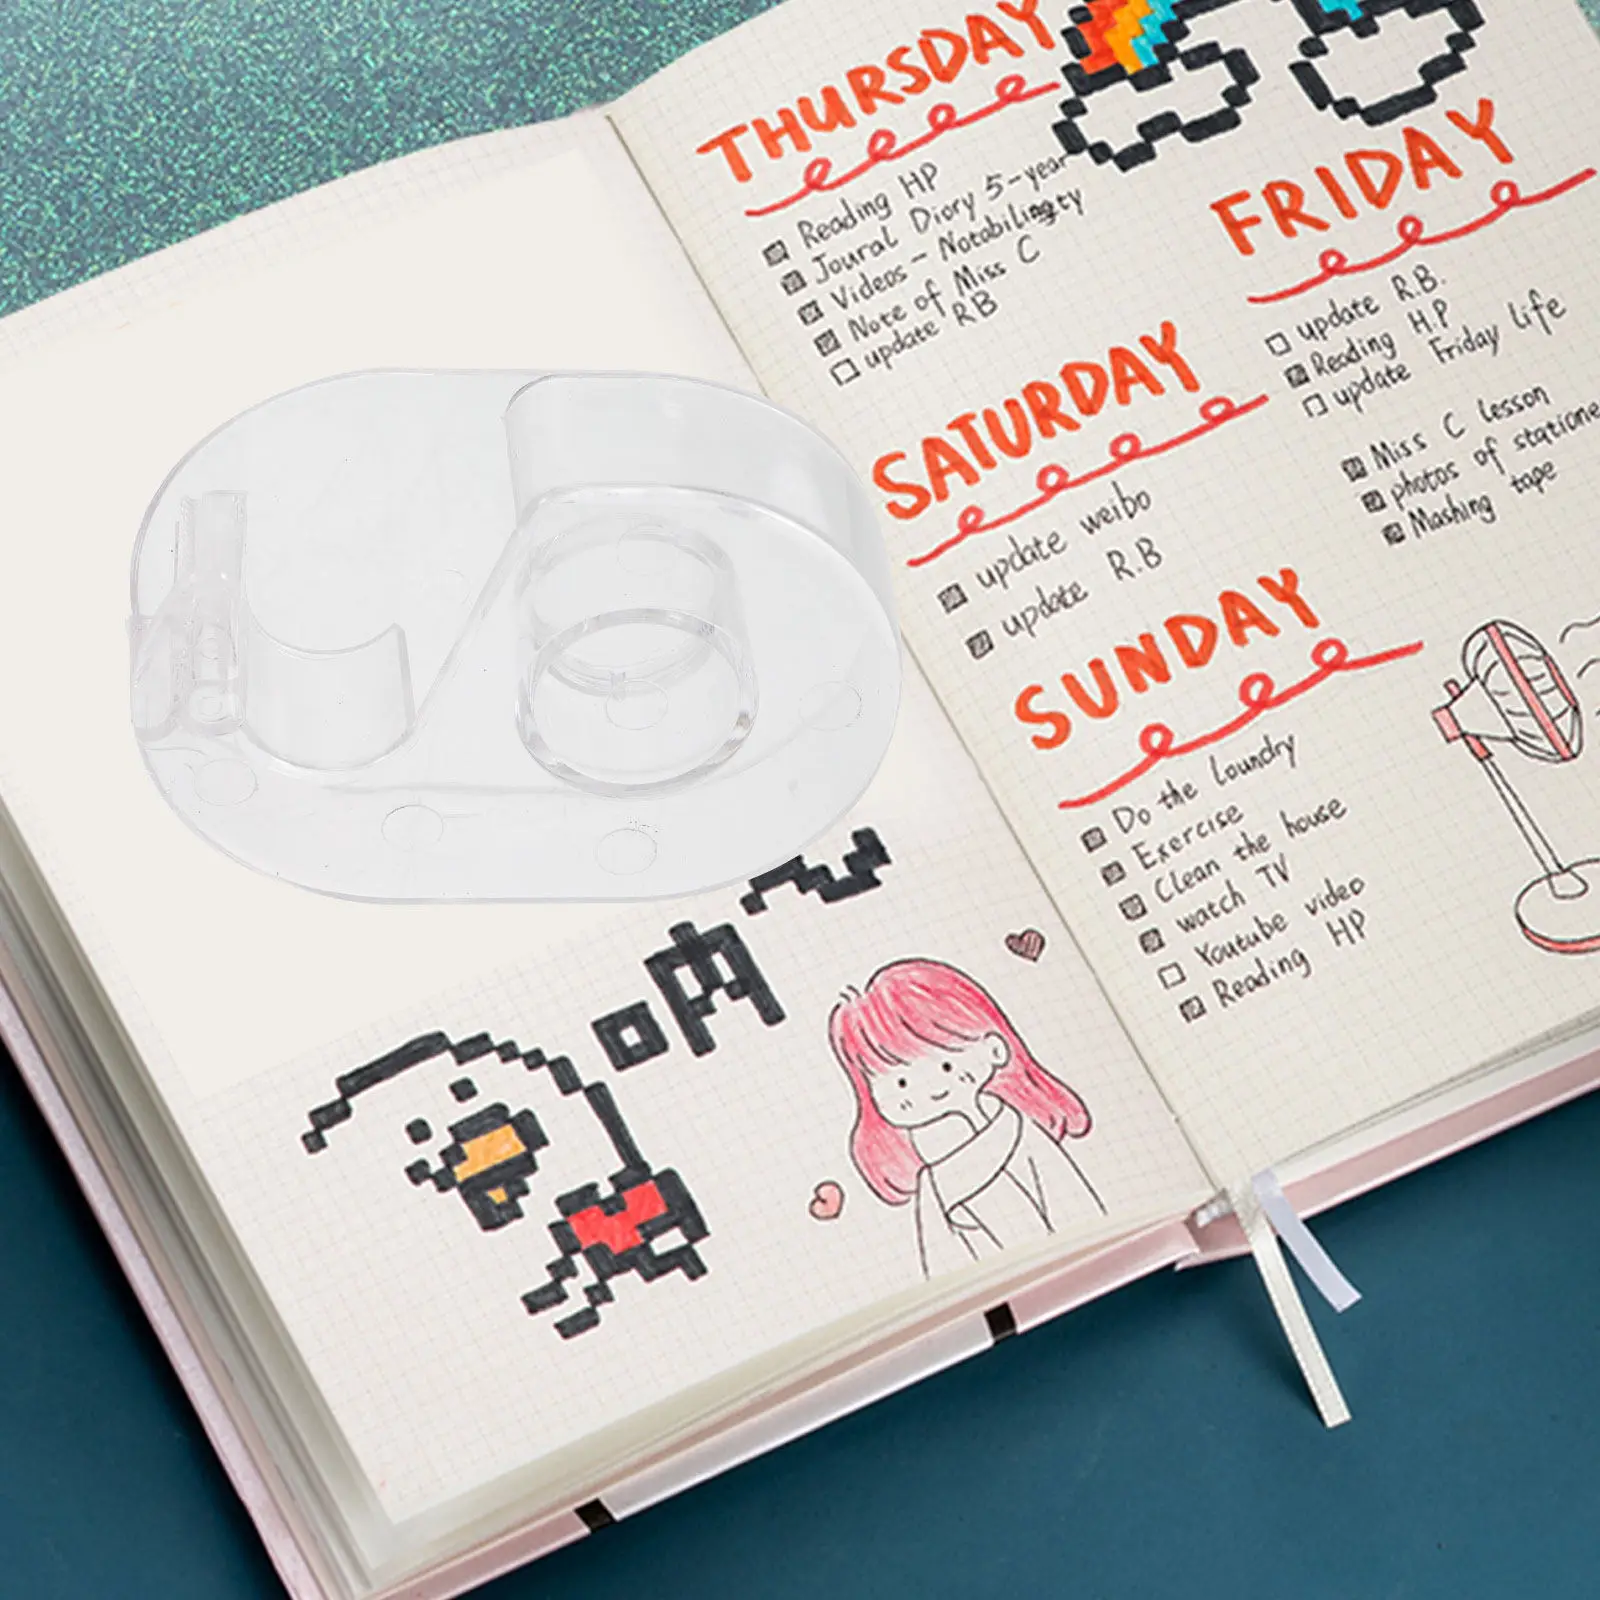 THURSDAY
Reading HP
Joural Diory 5-year
Videos - Notabilingty
Note of Miss C
update RB
FRIDAY
update R.B.
Reading H.P
update Friday life
Miss C lesson
photos of statione
Mashing tape
SATURDAY
update weibo
update R.B
SUNDAY
Do the Laundry
Exercise
Clean the house
watch TV
Youtube video
Reading HP